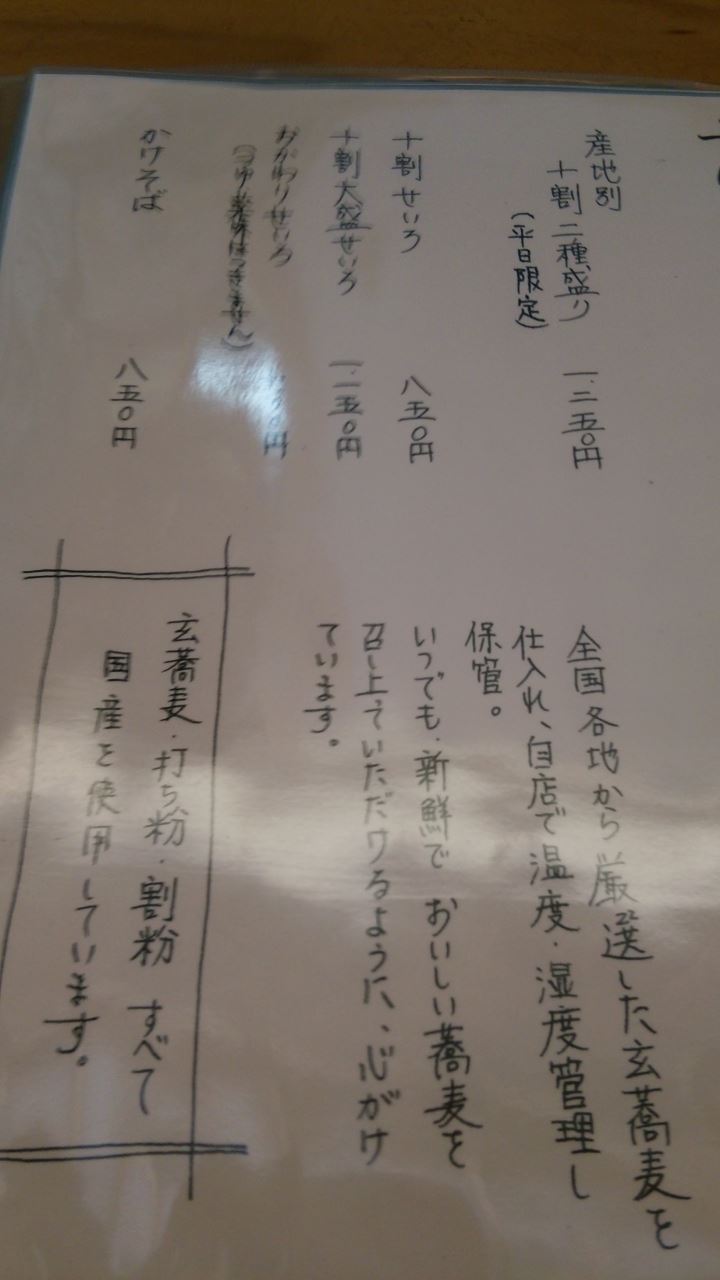 産地別
十割二種盛り
(平日限定)
一.二五〇円
十割せいろ
八五〇円
十割大盛せいろ
一.一五〇円
おかわりせいろ
(つゆ・薬味はつきません)
円
かけそば
八五〇円
全国各地から厳選した玄蕎麦を
仕入れ、自店で温度・湿度管理し
保管。
いつでも、新鮮で おいしい蕎麦を
召し上ていただけるように、心がけ
ています。
玄蕎麦・打ち粉・割粉 すべて
国産を使用しています。